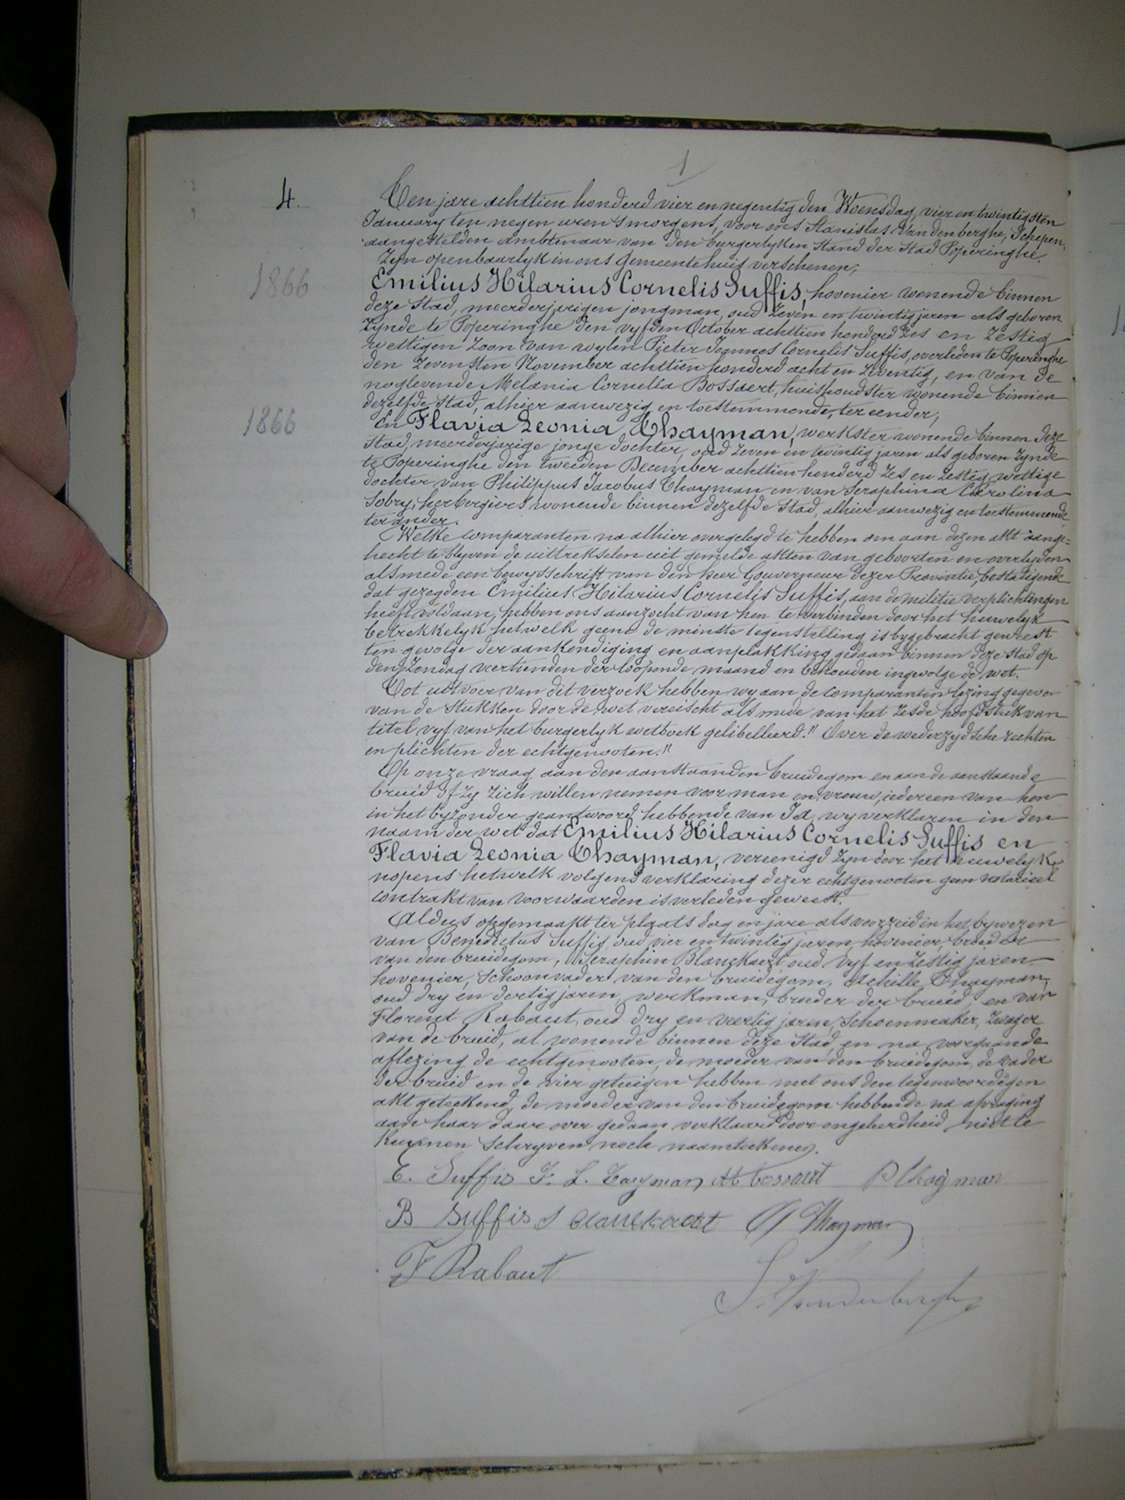 1
4.
Ten jare achttien honderd vier en negentig den Woensdag, vier en twintigsten
January ten negen uren 's morgens, voor ons Stanislas Vandenberghe, Schepen,
aangestelden ambtenaar van den burgerlyken stand der stad Poperinghe.
Zyn openbaarlyk in ons gemeentehuis verschenen;
1866
Emilius Hilarius Cornelis Suffis, hovenier wonende binnen
deze stad, meerderjarigen jongman, oud zeven en twintig jaren als geboren
zynde te Poperinghe den vyfden October achttien honderd zes en zestig
wettigen zoon van wylen Pieter Joannes Cornelis Suffis, overleden te Poperinghe
den zevensten November achttien honderd acht en zeventig, en van de
noglevende Melania Cornelia Bossaert, huishoudster wonende binnen
dezelfde stad, alhier aanwezig en toestemmende, ter eender;
1866
En Flavia Leonia Thayman, werkster wonende binnen deze
stad, meerderjarige jonge dochter, oud zeven en twintig jaren als geboren zynde
te Poperinghe den tweeden December achttien honderd zes en zestig, wettige
dochter van Philippus Jacobus Thayman en van Seraphina Carolina
Sobry, herbergiers wonende binnen dezelfde stad, alhier aanwezig en toestemmende
ter ander.
Welke comparanten na alhier overgelegd te hebben om aan dezen akt aange-
hecht te blyven de uittrekselen uit gemelde akten van geboorten en overlyden
alsmede een bewysschrift van den heer Gouverneur dezer Provintie, bestatigende
dat gezegden Emilius Hilarius Cornelis Suffis, aan de militie verplichtingen
heeft voldaan, hebben ons aanzocht van hen te verbinden door het huwelyk
betrekkelyk hetwelk geene de minste tegenstelling is bygebracht geweest
ten gevolge der aankondiging en aanplakking gedaan binnen deze stad op
den Zondag veertienden der loopende maand en behouden ingevolge de wet.
Tot uitvoer van dit verzoek hebben wy aan de comparanten lezing gegeven
van de stukken door de wet vereischt alsmede van het zesde hoofdstuk van
titel vyf van het burgerlyk wetboek gelibelleerd: "Over de wederzydsche rechten
en plichten der echtgenooten."
Op onze vraag aan den aanstaanden bruidegom en aan de aanstaande
bruid of zy zich willen nemen voor man en vrouw, iedereen van hen
in het byzonder geantwoord hebbende van Ja, wy verklaren in den
naam der wet dat Emilius Hilarius Cornelis Suffis en
Flavia Leonia Thayman, vereenigd zyn door het huwelyk,
nopens hetwelk volgens verklaring dezer echtgenooten geen notarieel
contrakt van voorwaarden is verleden geweest.
Aldus opgemaakt ter plaats dag en jare als voorzeid in het bywezen
van Benedictus Suffis, oud vier en twintig jaren, hovenier, broeder
van den bruidegom, Seraphin Blanckaert, oud vyf en zestig jaren
hovenier, schoonvader van den bruidegom, Achille Thayman,
oud dry en dertig jaren, werkman, broeder der bruid, en van
Florent Rabaut, oud dry en veertig jaren, schoenmaker, zwager
van de bruid, al wonende binnen deze stad en na voorgaande
aflezing de echtgenooten, de moeder van den bruidegom, de vader
der bruid en de vier getuigen hebben met ons den tegenwoordigen
akt geteekend, de moeder van den bruidegom hebbende na afvraging
aan haar daar over gedaan verklaard door ongeleerdheid niet te
kunnen schryven noch naamteekenen.
E. Suffis F. L. Tayman M Bossaert P Thayman
B Suffis S Blanckaert A Thayman
F Rabaut
S. Vandenberghe